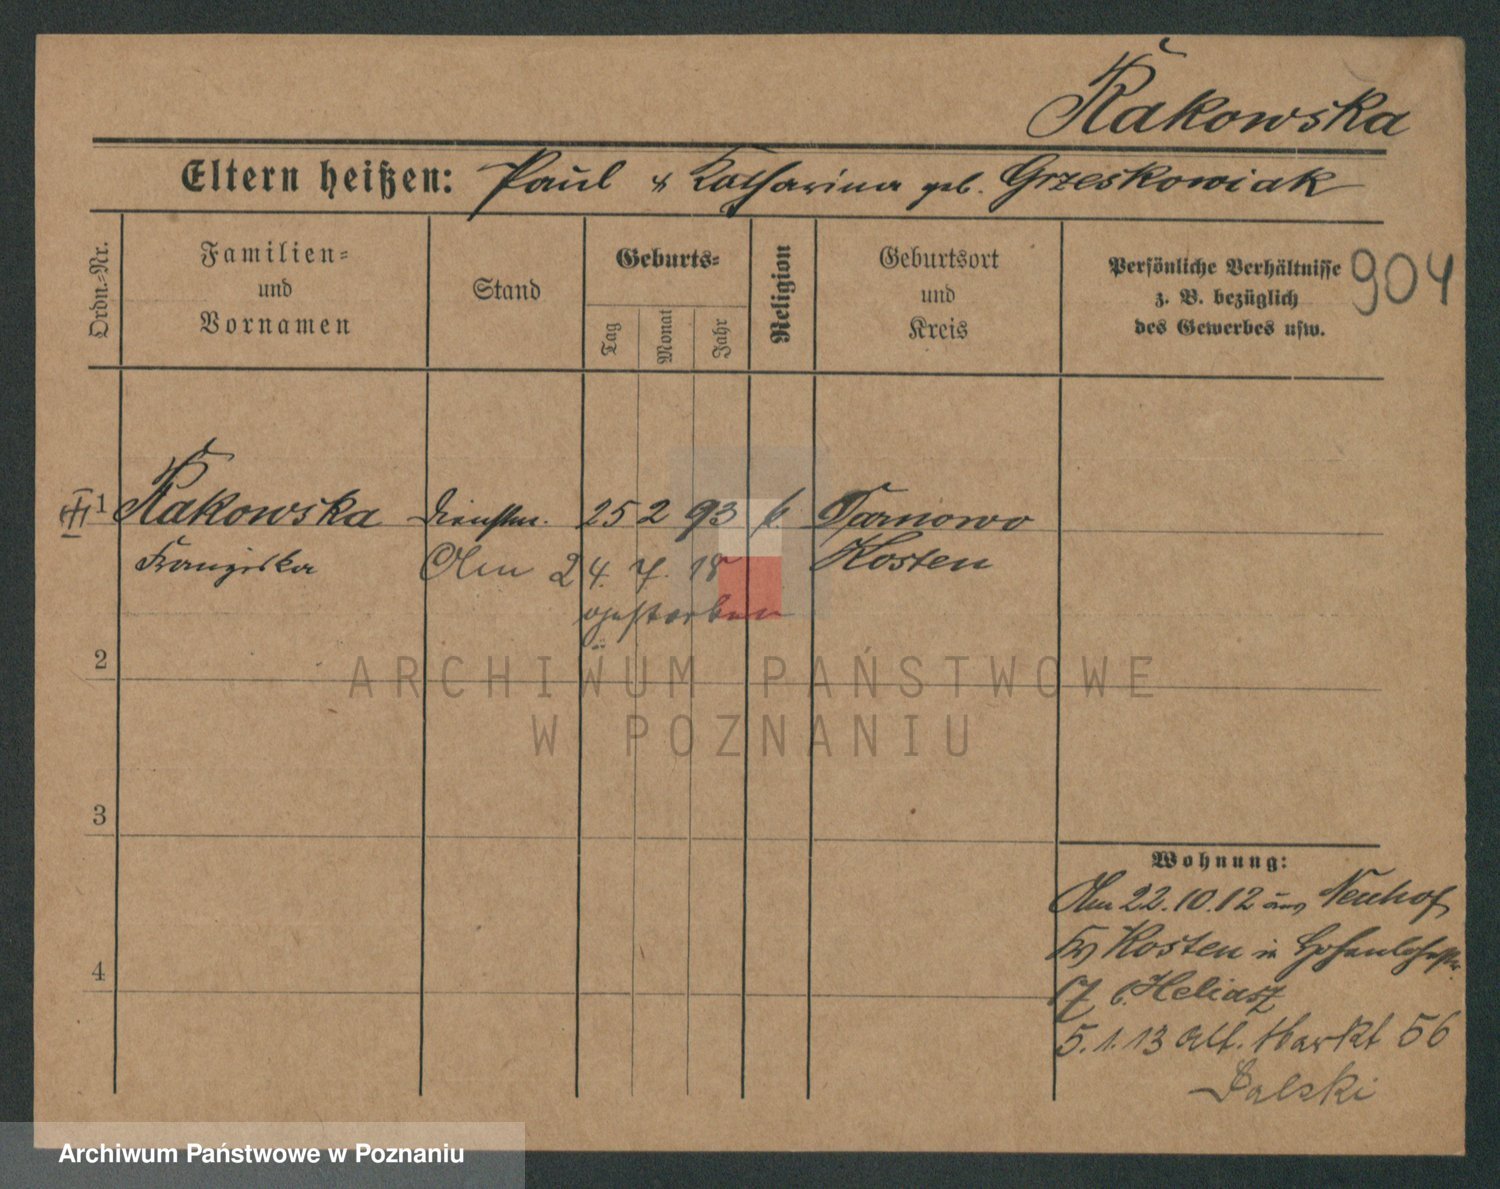 Rakowska
Eltern heißen: Paul & Katharina geb. Grzeskowiak
Ordn.=Nr.
Familien=
und
Vornamen
Stand
Geburts=
Tag
Monat
Jahr
Religion
Geburtsort
und
Kreis
Persönliche Verhältnisse
z. B. bezüglich
des Gewerbes usw.
904
1 Rakowska Dienstm. 25 2 93 k. Tarnowo
Franziska Am 24. 7. 18 Kosten
gestorben
2
ARCHIWUM PAŃSTWOWE
W POZNANIU
3
Wohnung:
Am 22.10.12 aus Neuhof
Kr Kosten in Hohenlohestr.
b. Heliasz
4
5.1.13 Alt. Markt 56
Salski
Archiwum Państwowe w Poznaniu